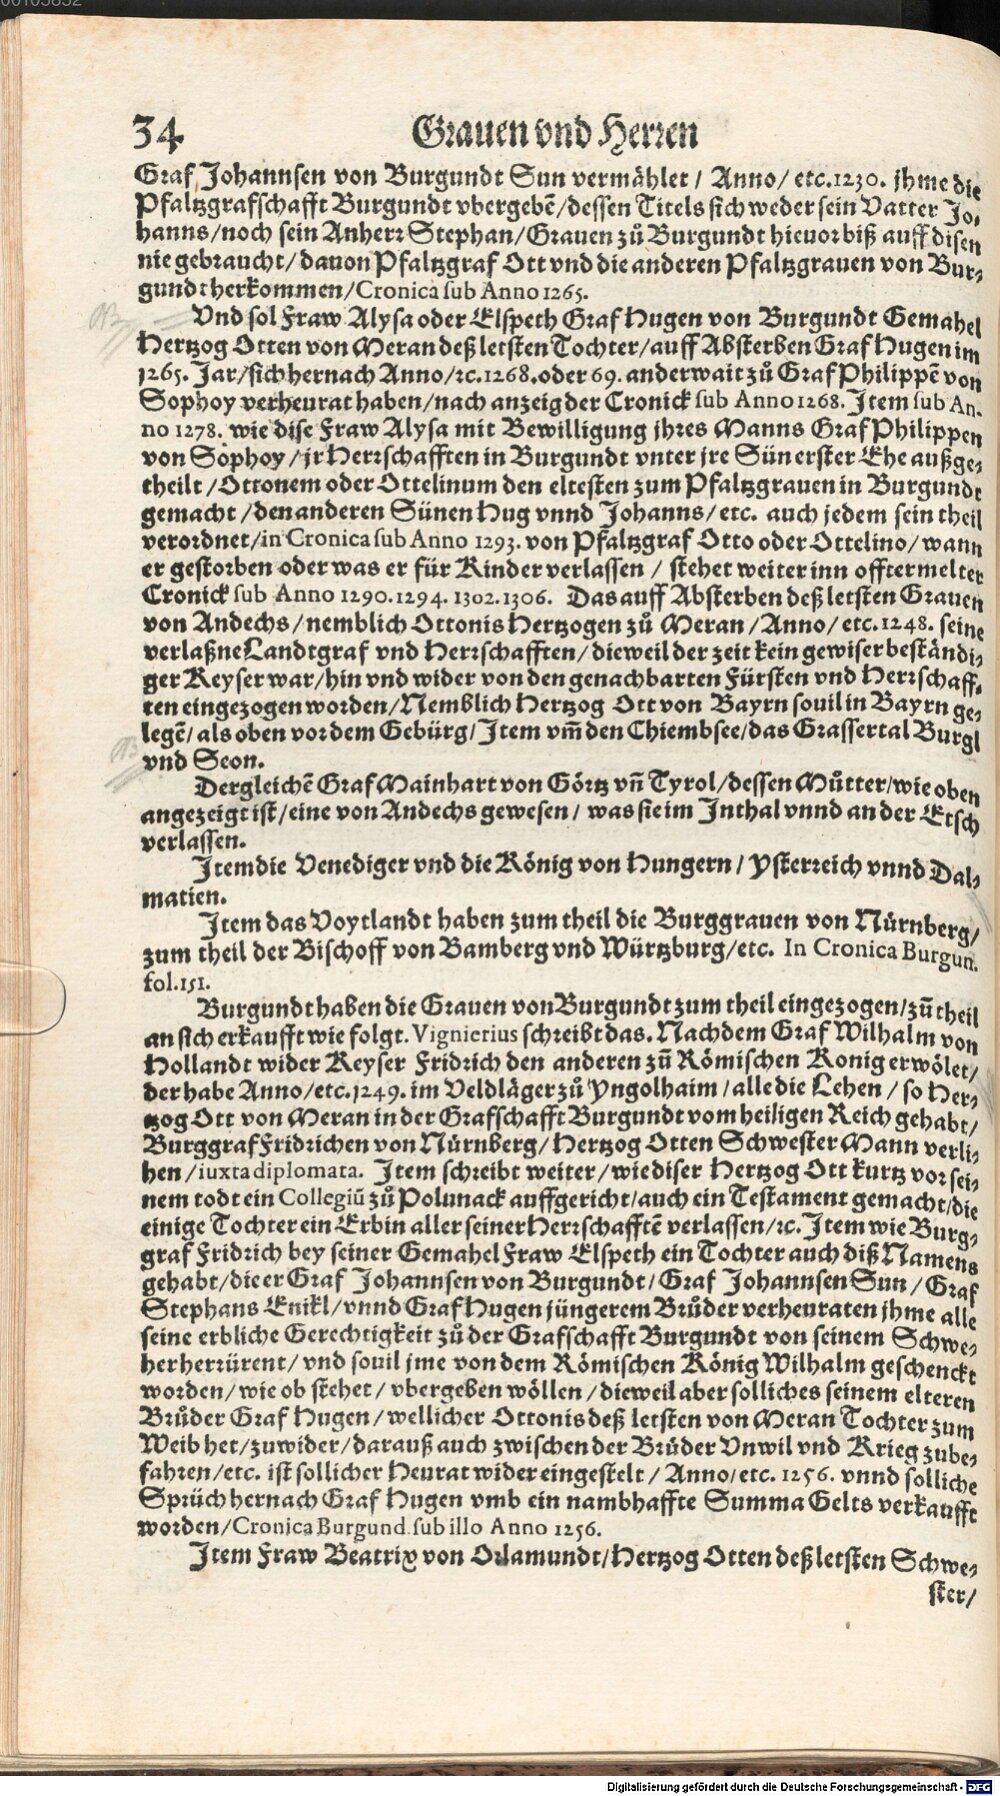 34 Grauen vnd Herren
Graf Johannsen von Burgundt Sun vermählet / Anno / etc. 1230. jhme die
Pfaltzgrafschafft Burgundt vbergebẽ / dessen Titels sich weder sein Vatter Jo-
hanns / noch sein Anherr Stephan / Grauen zů Burgundt hieuor biß auff disen
nie gebraucht / dauon Pfaltzgraf Ott vnd die anderen Pfaltzgrauen von Bur-
gundt herkommen / Cronica sub Anno 1265.
Vnd sol Fraw Alysa oder Elspeth Graf Hugen von Burgundt Gemahel
Hertzog Otten von Meran deß letsten Tochter / auff Absterben Graf Hugen im
1265. Jar / sich hernach Anno / ꝛc. 1268. oder 69. anderwait zů Graf Philippẽ von
Sophoy verheurat haben / nach anzeig der Cronick sub Anno 1268. Item sub An-
no 1278. wie dise Fraw Alysa mit Bewilligung jhres Manns Graf Philippen
von Sophoy / jr Herrschafften in Burgundt vnter jre Sün erster Ehe außge-
theilt / Ottonem oder Ottelinum den eltesten zum Pfaltzgrauen in Burgundt
gemacht / den anderen Sünen Hug vnnd Johanns / etc. auch jedem sein theil
verordnet / in Cronica sub Anno 1293. von Pfaltzgraf Otto oder Ottelino / wann
er gestorben oder was er für Kinder verlassen / stehet weiter inn offtermelter
Cronick sub Anno 1290. 1294. 1302. 1306. Das auff Absterben deß letsten Grauen
von Andechs / nemblich Ottonis Hertzogen zů Meran / Anno / etc. 1248. seine
verlaßne Landtgraf vnd Herrschafften / dieweil der zeit kein gewiser beständi-
ger Keyser war / hin vnd wider von den genachbarten Fürsten vnd Herrschaff-
ten eingezogen worden / Nemblich Hertzog Ott von Bayrn souil in Bayrn ge-
legẽ / als oben vor dem Gebürg / Item vm̃ den Chiembsee / das Grassertal Burgl
vnd Seon.
Dergleichẽ Graf Mainhart von Görtz vn̄ Tyrol / dessen Můtter / wie oben
angezeigt ist / eine von Andechs gewesen / was sie im Inthal vnnd an der Etsch
verlassen.
Item die Venediger vnd die König von Hungern / Ysterreich vnnd Dal-
matien.
Item das Voytlandt haben zum theil die Burggrauen von Nürnberg /
zum theil der Bischoff von Bamberg vnd Würtzburg / etc. In Cronica Burgun.
fol. 151.
Burgundt haben die Grauen von Burgundt zum theil eingezogen / zů theil
an sich erkaufft wie folgt. Vignierius schreibt das. Nachdem Graf Wilhalm von
Hollandt wider Keyser Fridrich den anderen zů Römischen Konig erwölet /
der habe Anno / etc. 1249. im Veldläger zů Yngolhaim / alle die Lehen / so Her-
tzog Ott von Meran in der Grafschafft Burgundt vom heiligen Reich gehabt /
Burggraf Fridrichen von Nürnberg / Hertzog Otten Schwester Mann verli-
hen / iuxta diplomata. Item schreibt weiter / wie diser Hertzog Ott kurtz vor sei-
nem todt ein Collegiū zů Polunack auffgericht / auch ein Testament gemacht / die
einige Tochter ein Erbin aller seiner Herrschafftẽ verlassen / ꝛc. Item wie Burg-
graf Fridrich bey seiner Gemahel Fraw Elspeth ein Tochter auch diß Namens
gehabt / die er Graf Johannsen von Burgundt / Graf Johannsen Sun / Graf
Stephans Enikl / vnnd Graf Hugen jüngerem Brůder verheuraten jhme alle
seine erbliche Gerechtigkeit zů der Grafschafft Burgundt von seinem Schwe-
her herrürent / vnd souil jme von dem Römischen König Wilhalm geschenckt
worden / wie ob stehet / vbergeben wöllen / dieweil aber solliches seinem elteren
Brůder Graf Hugen / wellicher Ottonis deß letsten von Meran Tochter zum
Weib het / zuwider / darauß auch zwischen der Brüder Vnwil vnd Krieg zube-
fahren / etc. ist sollicher Heurat wider eingestelt / Anno / etc. 1256. vnnd solliche
Sprüch hernach Graf Hugen vmb ein nambhaffte Summa Gelts verkaufft
worden / Cronica Burgund. sub illo Anno 1256.
Item Fraw Beatrix von Orlamundt / Hertzog Otten deß letsten Schwe-
ster /
Digitalisierung gefördert durch die Deutsche Forschungsgemeinschaft - DFG